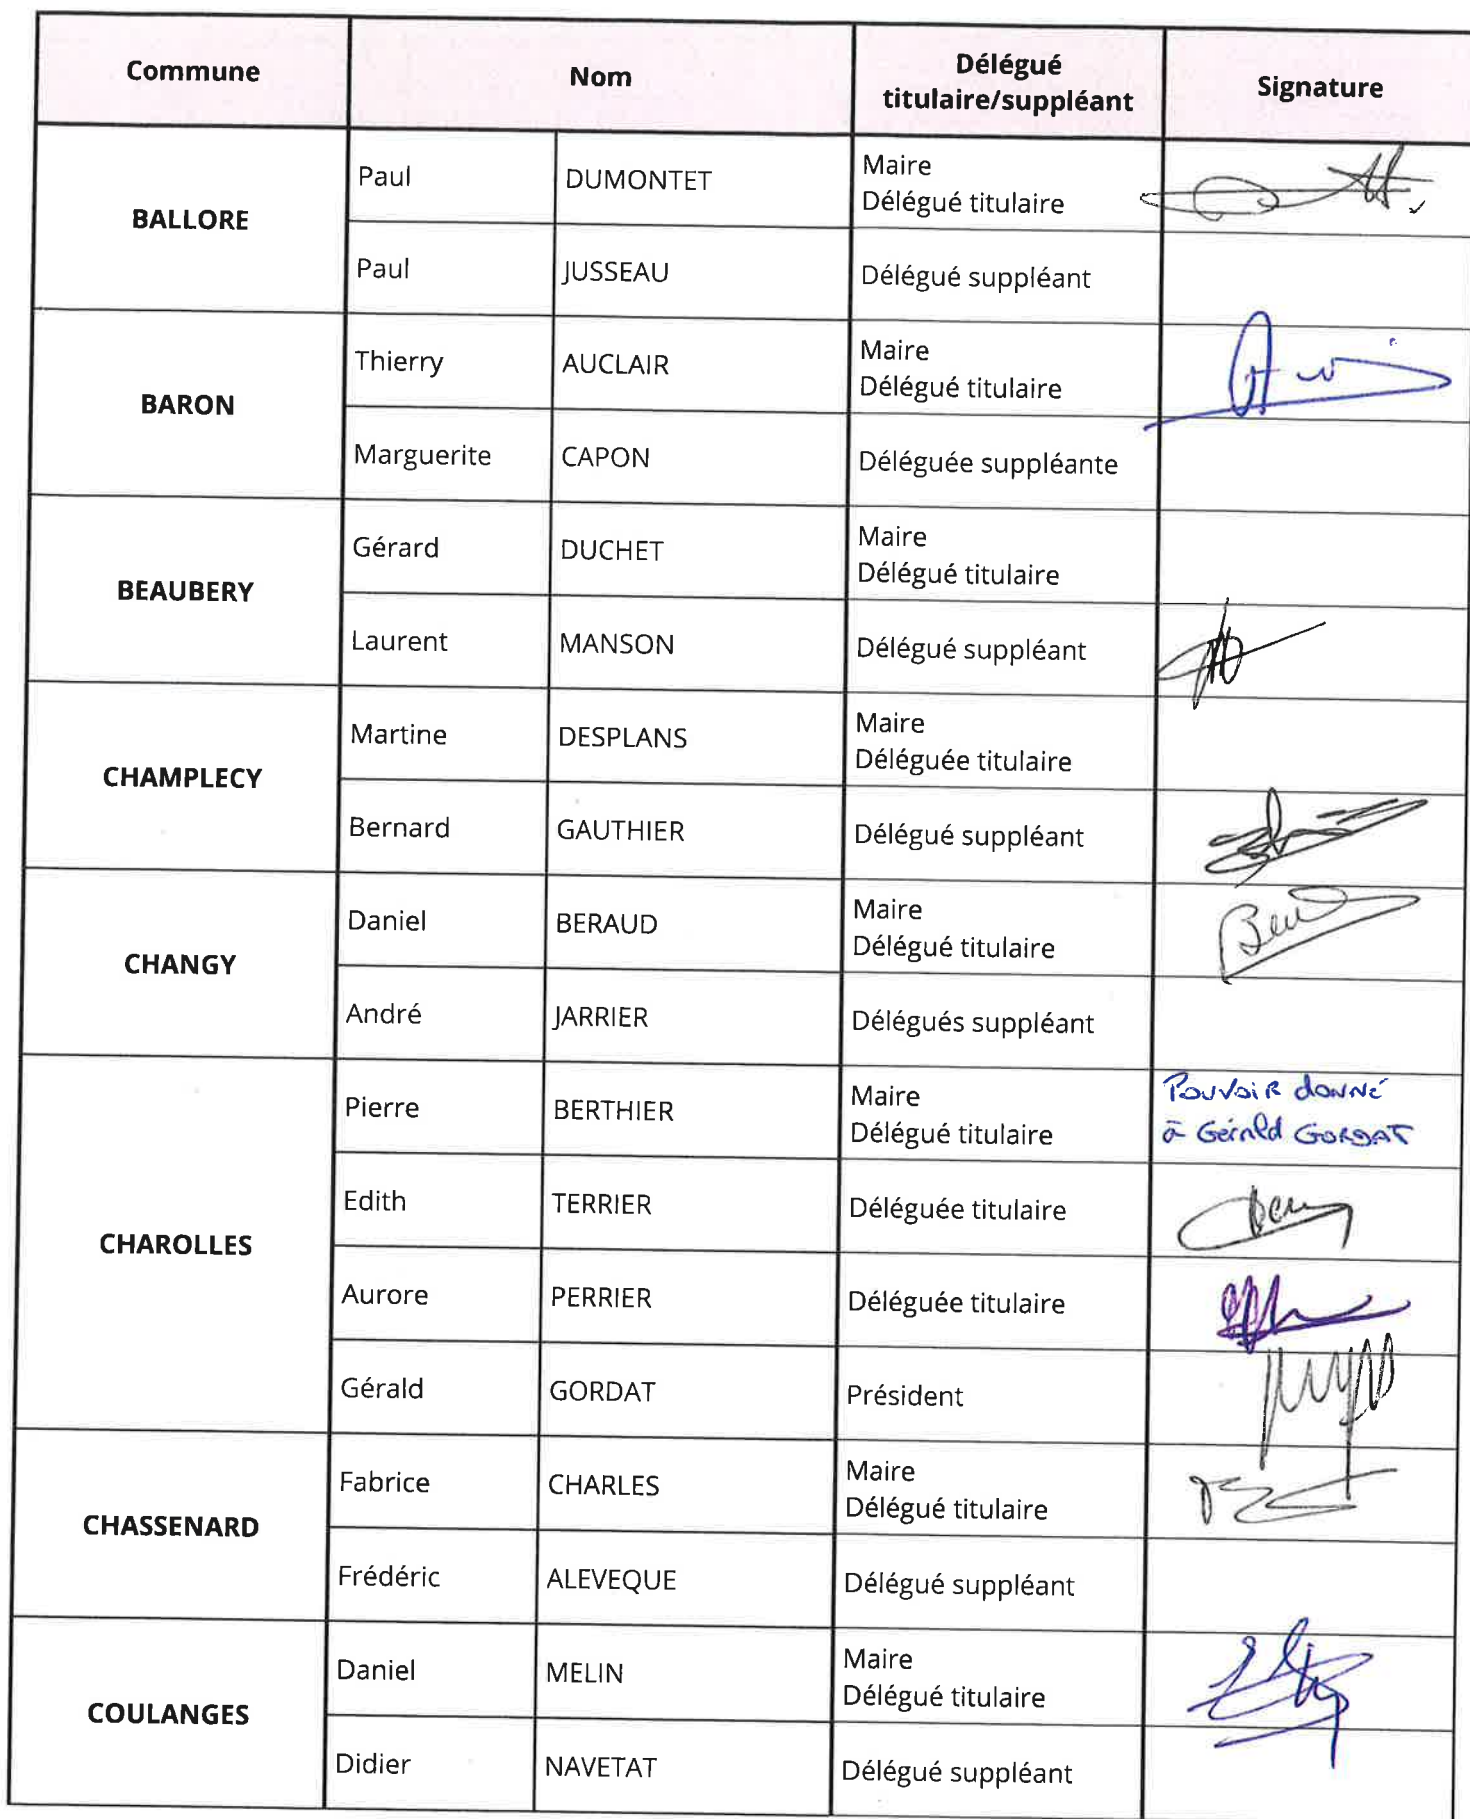 Commune
Nom
Délégué
titulaire/suppléant
Signature
BALLORE
Paul
DUMONTET
Maire
Délégué titulaire
Paul
JUSSEAU
Délégué suppléant
BARON
Thierry
AUCLAIR
Maire
Délégué titulaire
Marguerite
CAPON
Déléguée suppléante
BEAUBERY
Gérard
DUCHET
Maire
Délégué titulaire
Laurent
MANSON
Délégué suppléant
CHAMPLECY
Martine
DESPLANS
Maire
Déléguée titulaire
Bernard
GAUTHIER
Délégué suppléant
CHANGY
Daniel
BERAUD
Maire
Délégué titulaire
André
JARRIER
Délégués suppléant
CHAROLLES
Pierre
BERTHIER
Maire
Délégué titulaire
Pouvoir donné
à Gérald GORDAT
Edith
TERRIER
Déléguée titulaire
Aurore
PERRIER
Déléguée titulaire
Gérald
GORDAT
Président
CHASSENARD
Fabrice
CHARLES
Maire
Délégué titulaire
Frédéric
ALEVEQUE
Délégué suppléant
COULANGES
Daniel
MELIN
Maire
Délégué titulaire
Didier
NAVETAT
Délégué suppléant